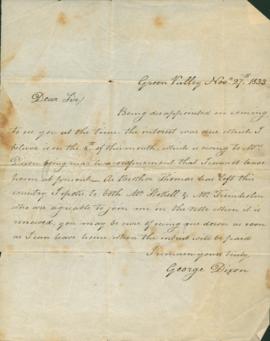 Green Valley Nov. 27th 1833
Dear Sir/
Being disappointed in coming
to see you at the time the interest was due which I
believe is on the of this month, which is owing to Mrs
Dixon being near to confinement that I cannot leave
home at present. As Brother Thomas has left this
country I spoke to both Mr & Mr
who are agreeable to join me in the note when it is
renewed, you may be sure of seeing me down as soon
as I can leave home when the interest will be paid
I remain yours truly
George Dixon